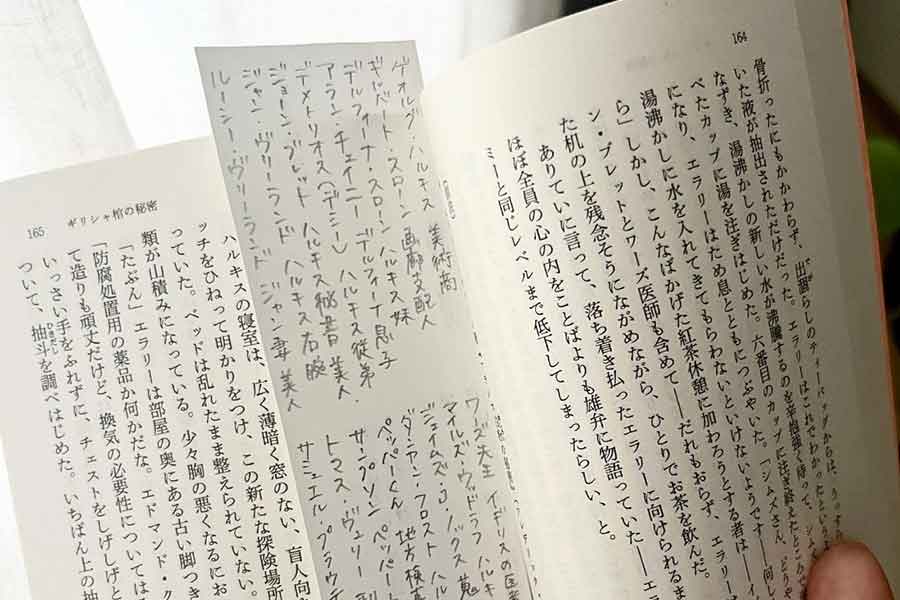 164
骨折ったにもかかわらず、出涸らしのティーバッグからは、うっす
いた液が抽出されただけだった。エラリーはこれでわかったという
なずき、湯沸かしの新しい水が沸騰するのを辛抱強く待って、シ
べたカップに湯を注ぎはじめた。六番目のカップに注ぎ終えたところで
になり、エラリーはため息とともにつぶやいた。「シムズさん、どうや
湯沸かしに水を入れてきてもらわないといけないようです――何し
ら」しかし、こんなばかげた紅茶休憩に加わろうとする者は――
ン・ブレットとワーズ医師も含めて――だれもおらず、エラリ
た机の上を残念そうにながめながら、ひとりでお茶を飲んだ。
ありていに言って、落ち着き払ったエラリーに向けられるま
ほぼ全員の心の内をことばよりも雄弁に物語っていた――エ
ミーと同じレベルまで低下してしまったらしい、と。
ゲオルグ・ハルキス 美術商
ギルバート・スローン 画廊支配人
デルフィーナ・スローン ハルキス妹
アラン・チェイニー デルフィーナ息子
デメトリオス(デミー) ハルキス従弟
ジョーン・ブレット ハルキス秘書 美人
ジャン・ヴリーランド ハルキス右腕
ルーシー・ヴリーランド ジャン妻 美人
ワーズ先生 イギリスの医
マイルズ・ウッドラフ ハルキ
ジェイムズ・J・ノックス
ダンカン・フロスト
ペッパーくん 地方検事
サンプソン
トマス・ヴェリー
サミュエル・プラウテ
165 ギリシャ棺の秘密
ハルキスの寝室は、広く薄暗く窓のない、盲人向
ッチをひねって明かりをつけ、この新たな探険場所
っていた。ベッドは乱れたまま整えられていない。
類が山積みになっている。少々胸の悪くなるにお
「たぶん」エラリーは部屋の奥にある古い脚つき
「防腐処置用の薬品か何かだな。エドマンド・ク
て造りも頑丈だけど、換気の必要性については
いっさい手をふれずに、チェストをしげしげと
ついて、抽斗を調べはじめた。いちばん上の抽